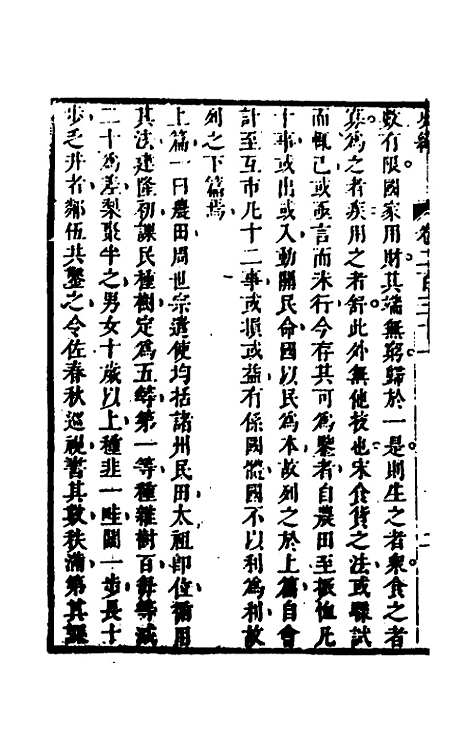 數有限國家用財其端無窮歸於一是則生之者衆食之者
寡爲之者疾用之者舒此外無他技也宋食貨之法或驟試
而輒已或亟言而未行今存其可爲鑒者自農田至振恤凡
十事或出或入動關民命國以民爲本故列之於上篇自會
計至互市凡十二事或損或益有係國體國不以利爲利故
列之下篇焉
上篇一曰農田周世宗遣使均括諸州民田太祖卽位循用
其法建隆初課民種樹定爲五等第一等種雜樹百每等減
二十爲差梨棗半之男女十歲以上種韭一畦闊一步長十
步乏井者鄰伍共鑿之令佐春秋巡視書其數秩滿第其課